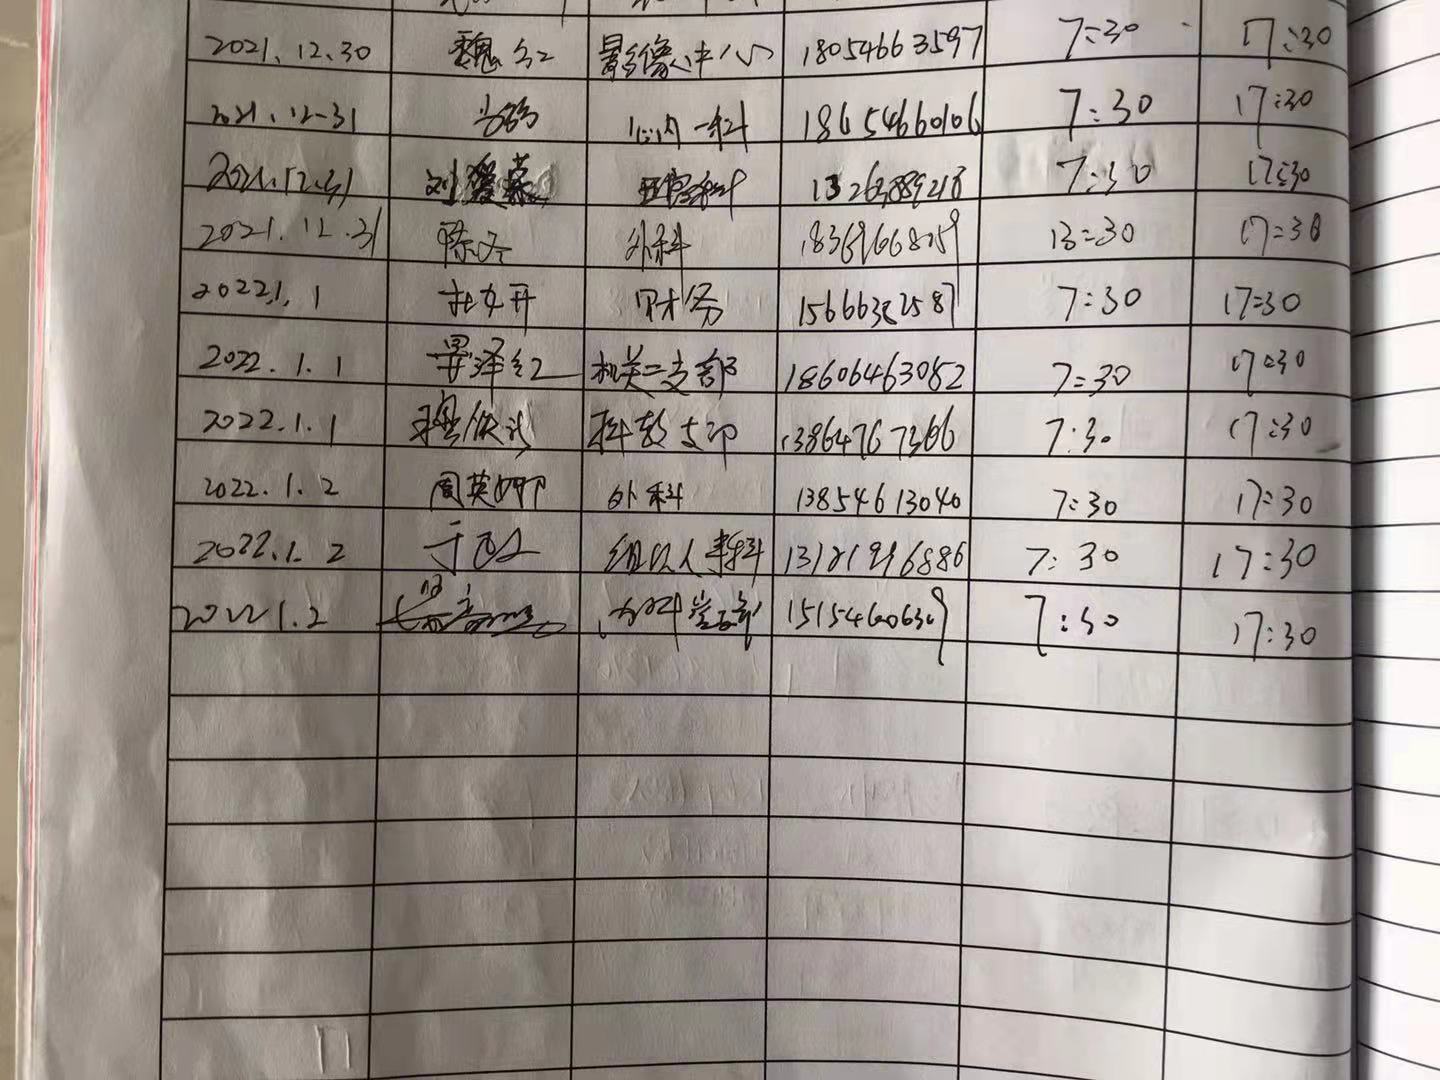 2021.12.30 魏红 影像中心 18054663597 7:30 17:30
2021.12.31 心内一科 18654660106 7:30 17:30
2021.12.31 刘爱荣 13263889218 7:30 17:30
2021.12.31 陈冬 外科 13:30 17:30
2022.1.1 杜文开 财务 7:30 17:30
2022.1.1 晏泽红 机关二支部 18606463052 7:30 17:30
2022.1.1 程俊 科教支部 13864767366 7:30 17:30
2022.1.2 周英娜 外科 13854613040 7:30 17:30
2022.1.2 于 组织人事科 7:30 17:30
2022 1.2 15154606309 7:30 17:30